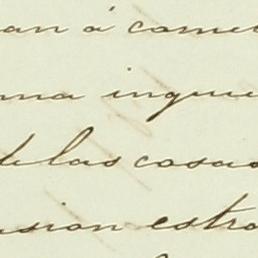 an á comer
ma inquie
de las cosas
usion estra